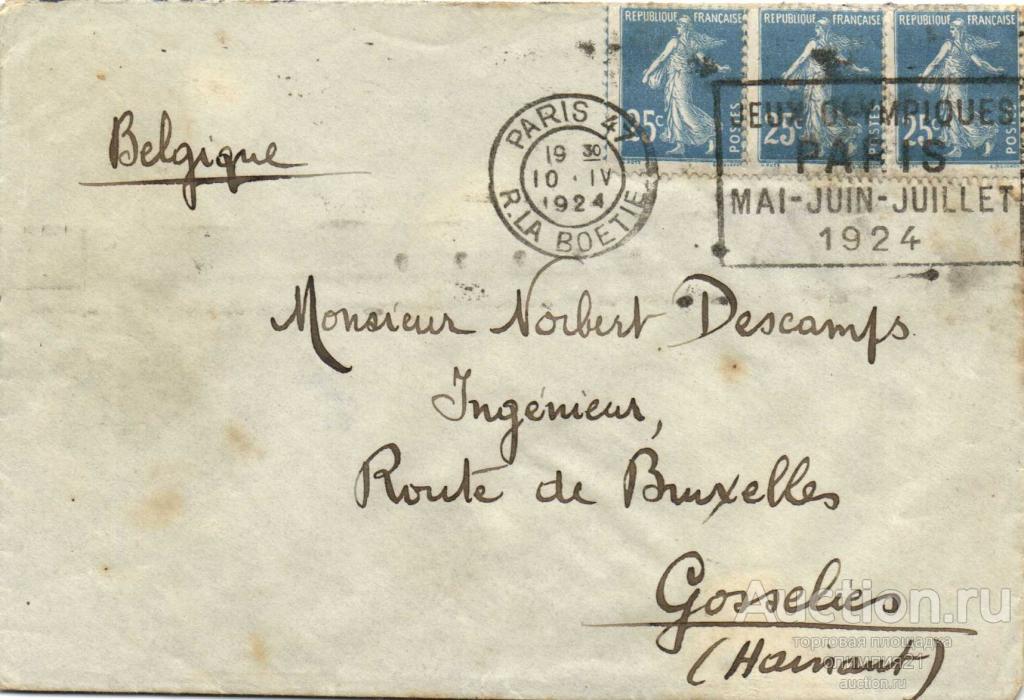 REPUBLIQUE FRANÇAISE REPUBLIQUE FRANÇAISE REPUBLIQUE FRANÇAISE
25c POSTES 25c POSTES 25c POSTES
PARIS
19 30
10 · IV
1924
R. LA BOETIE
JEUX OLYMPIQUES
PARIS
MAI-JUIN-JUILLET
1924
Belgique
Monsieur Norbert Descamps
Ingénieur,
Route de Bruxelles
Gosselies
(Hainaut)
Auction.ru
торговая площадка
олимпия21
auction.ru